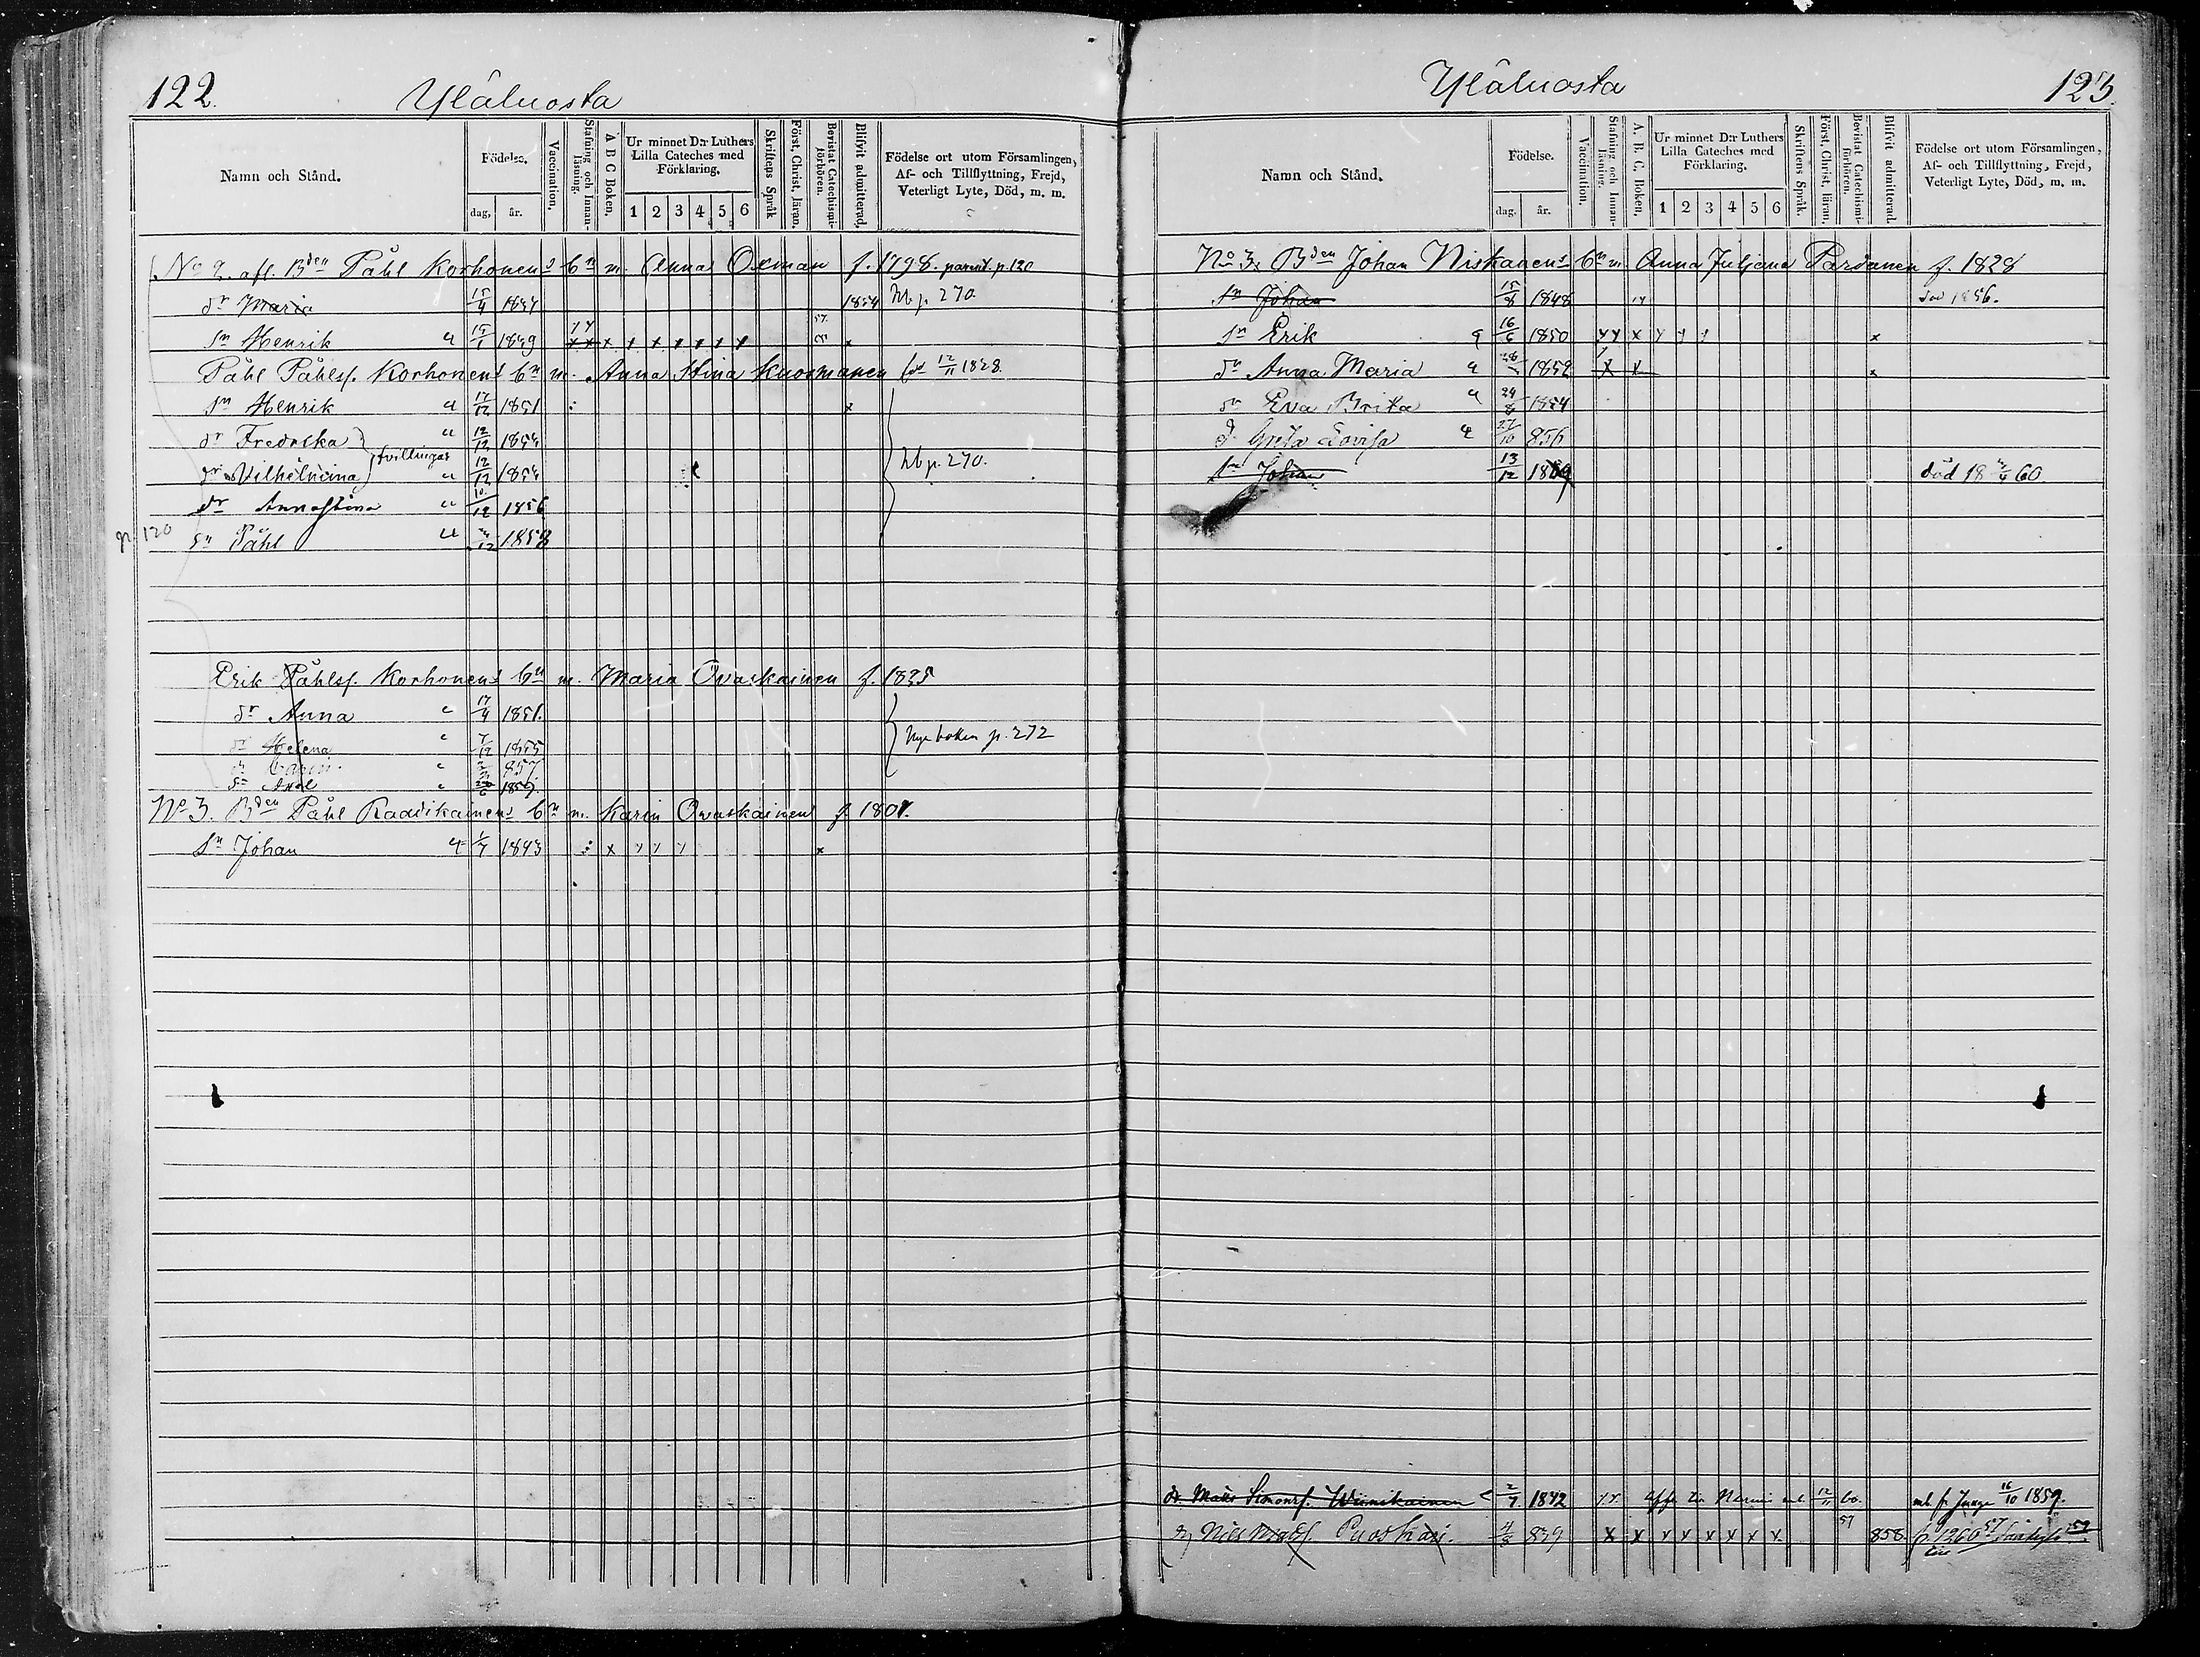 122.
Yläluosta
Namn och Stånd.
Födelse.
dag, år.
Vaccination.
Stafning och Innan-läsning.
A B C Boken.
Ur minnet D:r Luthers
Lilla Cateches med
Förklaring.
1 2 3 4 5 6
Skriftens Språk
Först, Christ, läran.
Bevistat Catechismi-förhören.
Blifvit admitterad.
Födelse ort utom Församlingen,
Af- och Tillflyttning, Frejd,
Veterligt Lyte, Död, m. m.
No 2. afl. Bden Påhl Korhonens Cn m. Anna Oxman f. 1798.
dr Maria 15/4 1854 Nb p. 270.
sn Henrik 1839 x x x x x x x x x
Påhl Påhlsf. Korhonens Cn m. Anna Stina Kuosmanen 12/11 1828.
sn Henrik 17/12 1851 x
dr Fredrika 12/12
tvillingar
dr Vilhelmina 12/12 Nb p. 270.
dr Annastina 10/12 1856
p. 120 sn Påhl /12 1858
Erik Påhlsf. Korhonens Cn m. Maria Ovaskainen f. 1825
dr Anna 17/4 1851.
dr Helena 7/12 1855 Nya boken p. 272
857
sn Axel 1859.
No 3. Bden Påhl Raadikainens Cn m. Karin Ovaskainen f. 1801.
sn Johan 1/7 1843 x x
Yläluosta
123.
Namn och Stånd.
Födelse.
dag. år.
Vaccination.
Stafning och Innan-läsning.
A. B. C. Boken.
Ur minnet D:r Luthers
Lilla Cateches med
Förklaring.
1 2 3 4 5 6
Skriftens Språk.
Först, Christ, läran.
Bevistat Catechismi-förhören.
Blifvit admitterad.
Födelse ort utom Församlingen,
Af- och Tillflyttning, Frejd,
Veterligt Lyte, Död, m. m.
No 3. Bden Johan Niskanens Cn m. Anna Juljana Pardanen f. 1828
sn Johan 15/8 1848 död 1856.
sn Erik 16/6 1850 x x
dr Anna Maria 28 1852 x x x
dr Eva Brita 24/8 1854
dr Greta Lovisa 27/10 856
sn Johan 13/12 1859 död 18 /4 60.
dr. Simonsf. Wiinikainen 2/7 1842 12/11 60. 16/10 1859.
Nils Puoskari. 4/3 839 x x x x x x x x 57 858